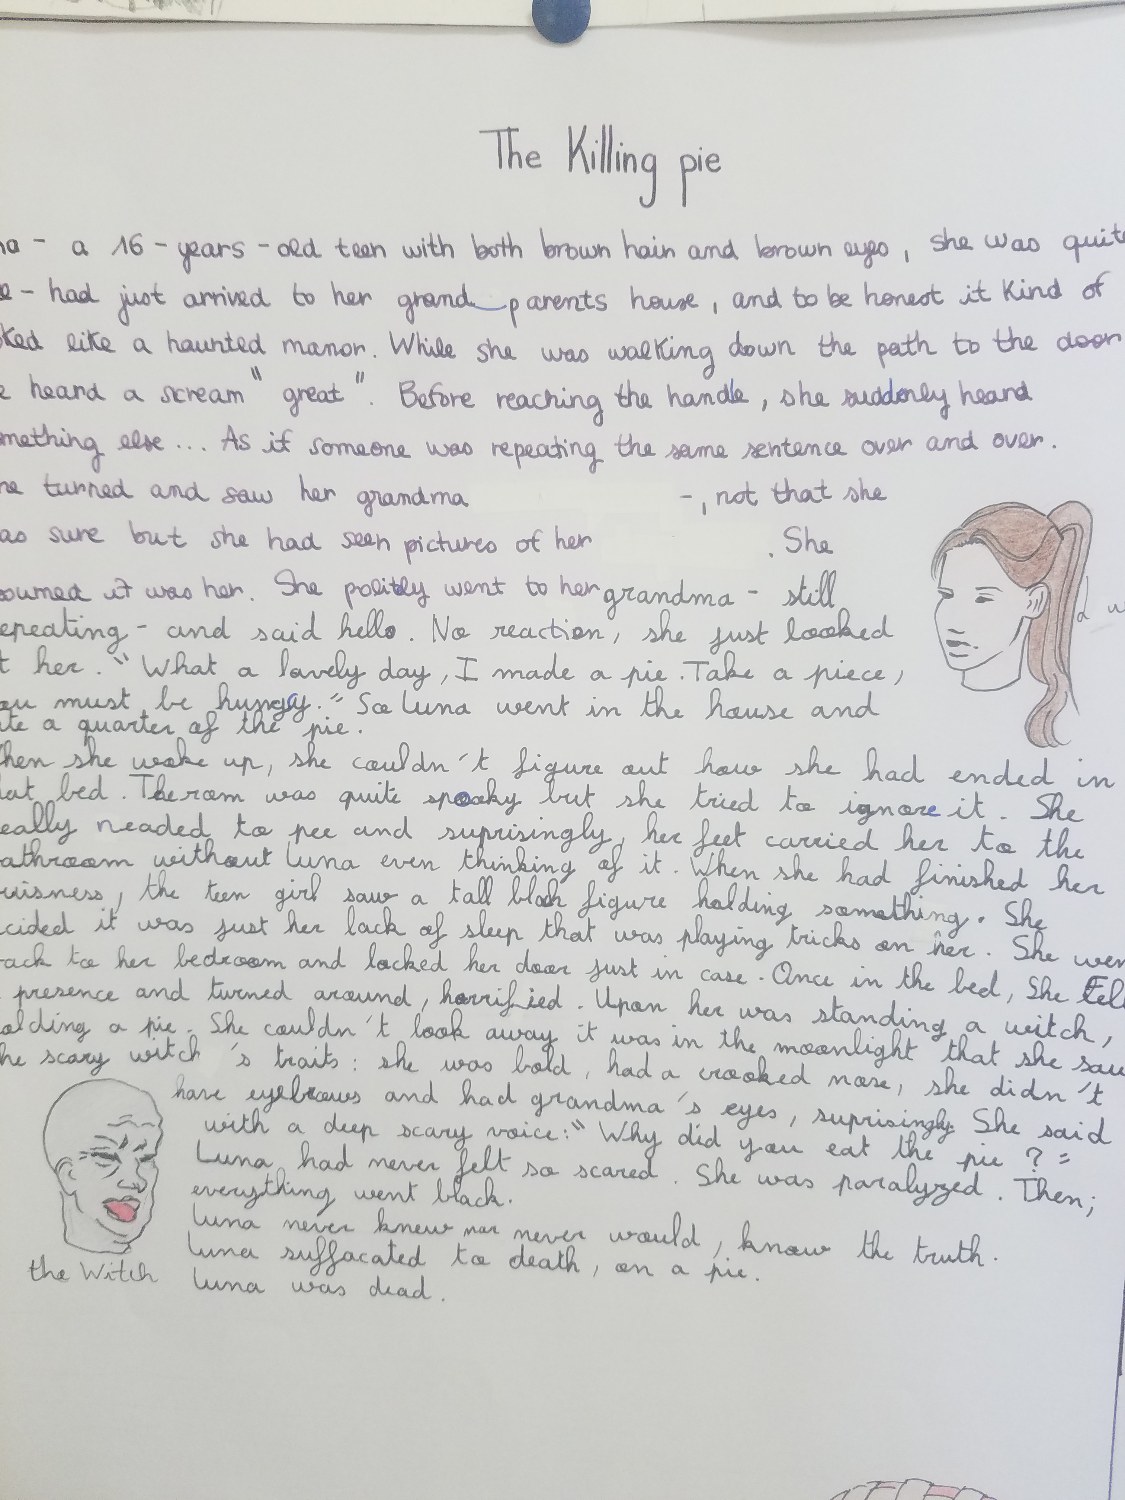 The Killing pie
na - a 16 - years - old teen with both brown hair and brown eyes, she was quite
e - had just arrived to her grand parents house, and to be honest it kind of
ked like a haunted manor. While she was walking down the path to the door
e heard a scream "great". Before reaching the handle, she suddenly heard
mething else... As if someone was repeating the same sentence over and over.
he turned and saw her grandma -, not that she
as sure but she had seen pictures of her . She
sumed it was her. She politly went to her grandma - still
epeating - and said hello. No reaction, she just loocked
t her. "What a lovely day, I made a pie. Take a piece,
ou must be hungry." So Luna went in the house and
te a quarter of the pie.
hen she woke up, she couldn't figure out how she had ended in
hat bed. The room was quite spooky but she tried to ignore it. She
eally needed to pee and suprisingly, her feet carried her to the
athroom without Luna even thinking of it. When she had finished her
uisness, the teen girl saw a tall black figure holding something. She
cided it was just her lack of sleep that was playing tricks on her. She wen
ack to her bedroom and locked her door just in case. Once in the bed, She Fel
presence and turned around, horrified. Upon her was standing a witch,
olding a pie. She couldn't look away it was in the moonlight that she saw
he scary witch 's traits: she was bold, had a crooked nose, she didn't
have eyebrows and had grandma's eyes, suprisingly. She said
with a deep scary voice: "Why did you eat the pie ?"
Luna had never felt so scared. She was paralyzed. Then;
everything went black.
Luna never knew nor never would, know the truth.
Luna suffocated to death, on a pie.
the Witch
Luna was dead.